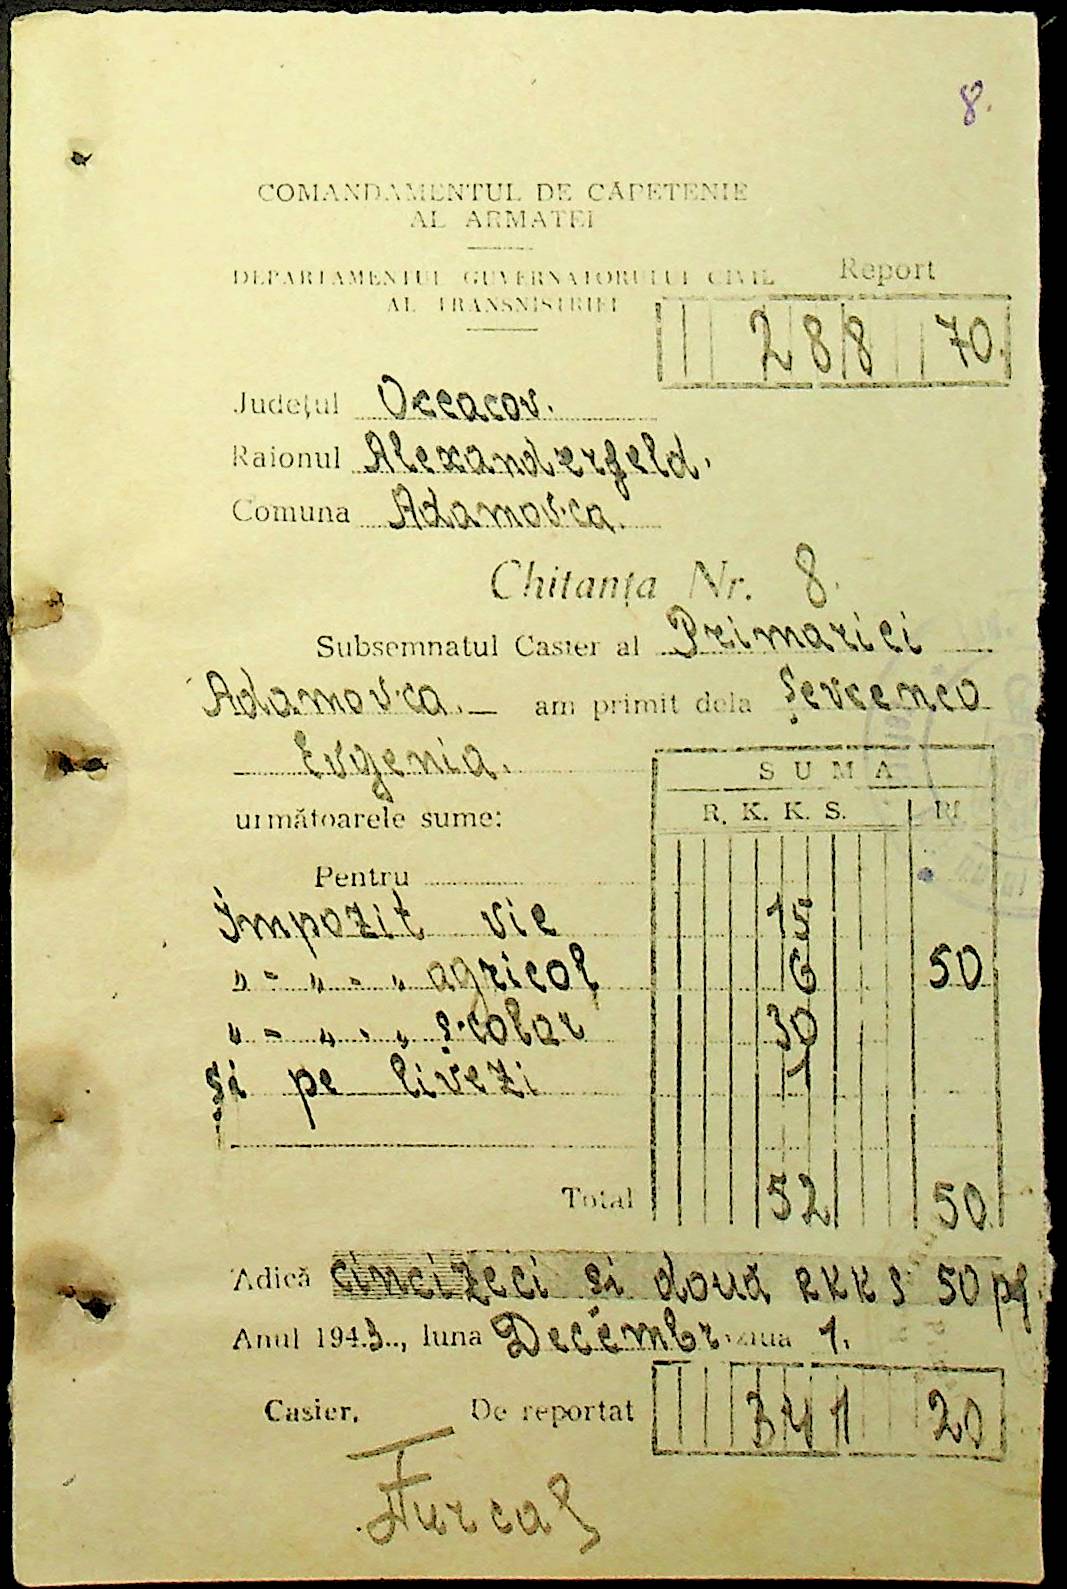 8.
COMANDAMENTUL DE CĂPETENIE
AL ARMATEI
DEPARTAMENTUL GUVERNATORULUI CIVIL
AL TRANSNISTRIEI
Report
288 70.
Județul Oceacov.
Raionul Alexanderfeld.
Comuna Adamovca.
Chitanța Nr. 8.
Subsemnatul Casier al Primariei
Adamovca. am primit dela Șevcenco
Evgenia.
următoarele sume:
SUMA
R. K. K. S. Pf
Pentru
Impozit vie 15
" - " - " agricol 6 50
" - " - " școlar 30
și pe livezi 1
Total 52 50.
Adică cincizeci și două RKKS 50 pf.
Anul 1943.., luna Decembr. ziua 1.
Casier, De reportat 341 20